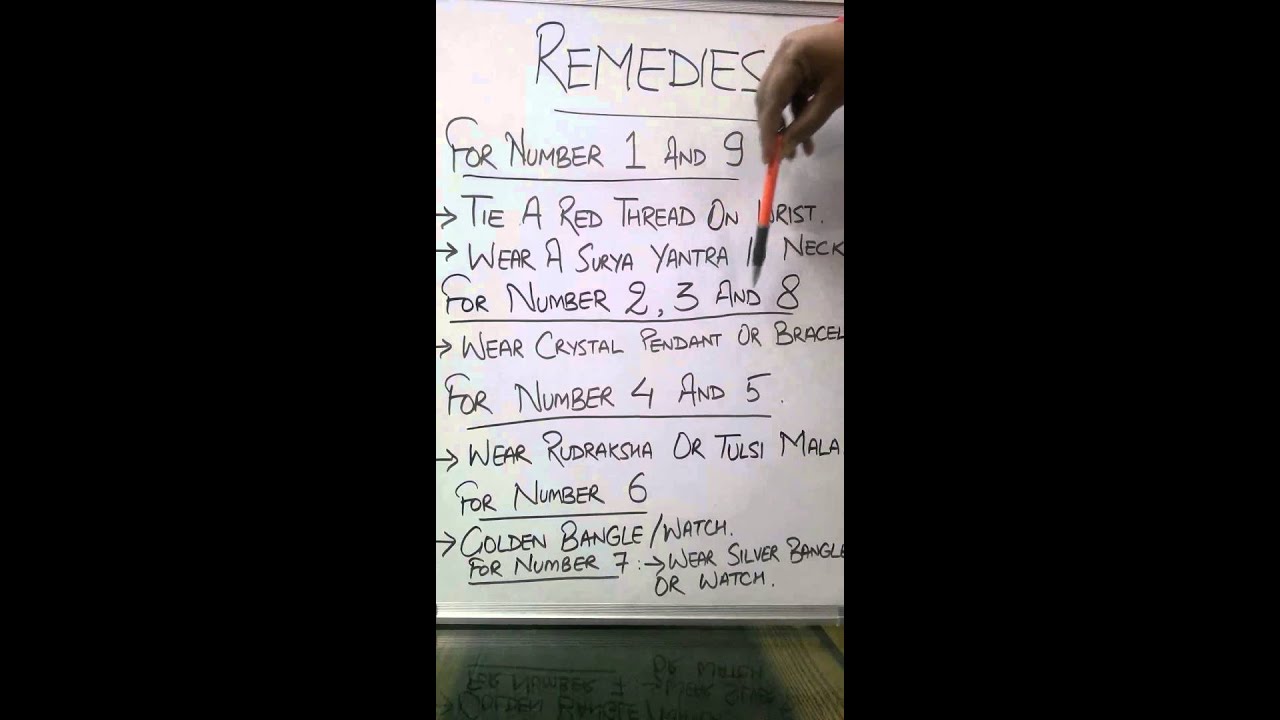 REMEDIES
FOR NUMBER 1 AND 9
→ TIE A RED THREAD ON WRIST.
→ WEAR A SURYA YANTRA IN NECK
FOR NUMBER 2, 3 AND 8
→ WEAR CRYSTAL PENDANT OR BRACEL
FOR NUMBER 4 AND 5.
→ WEAR RUDRAKSHA OR TULSI MALA
FOR NUMBER 6
→ GOLDEN BANGLE/WATCH.
FOR NUMBER 7:→ WEAR SILVER BANGLE
OR WATCH.